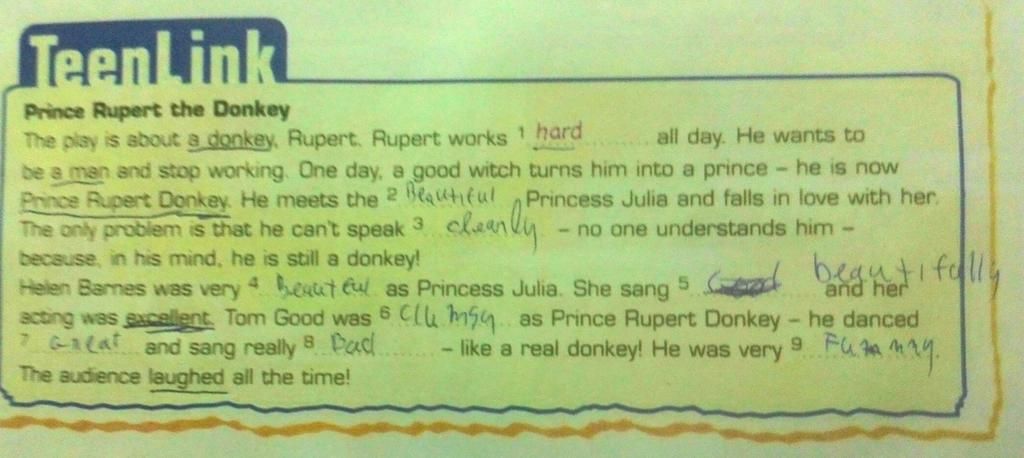 TeenLink
Prince Rupert the Donkey
The play is about a donkey, Rupert. Rupert works 1 hard all day. He wants to
be a man and stop working. One day, a good witch turns him into a prince – he is now
Prince Rupert Donkey. He meets the 2 Beautiful Princess Julia and falls in love with her.
The only problem is that he can't speak 3 clearly – no one understands him –
because, in his mind, he is still a donkey!
Helen Barnes was very 4 Beauteful as Princess Julia. She sang 5 Good beautifully and her
acting was excellent. Tom Good was 6 Cllumsy as Prince Rupert Donkey – he danced
7 Great and sang really 8 Bad – like a real donkey! He was very 9 Funnny.
The audience laughed all the time!